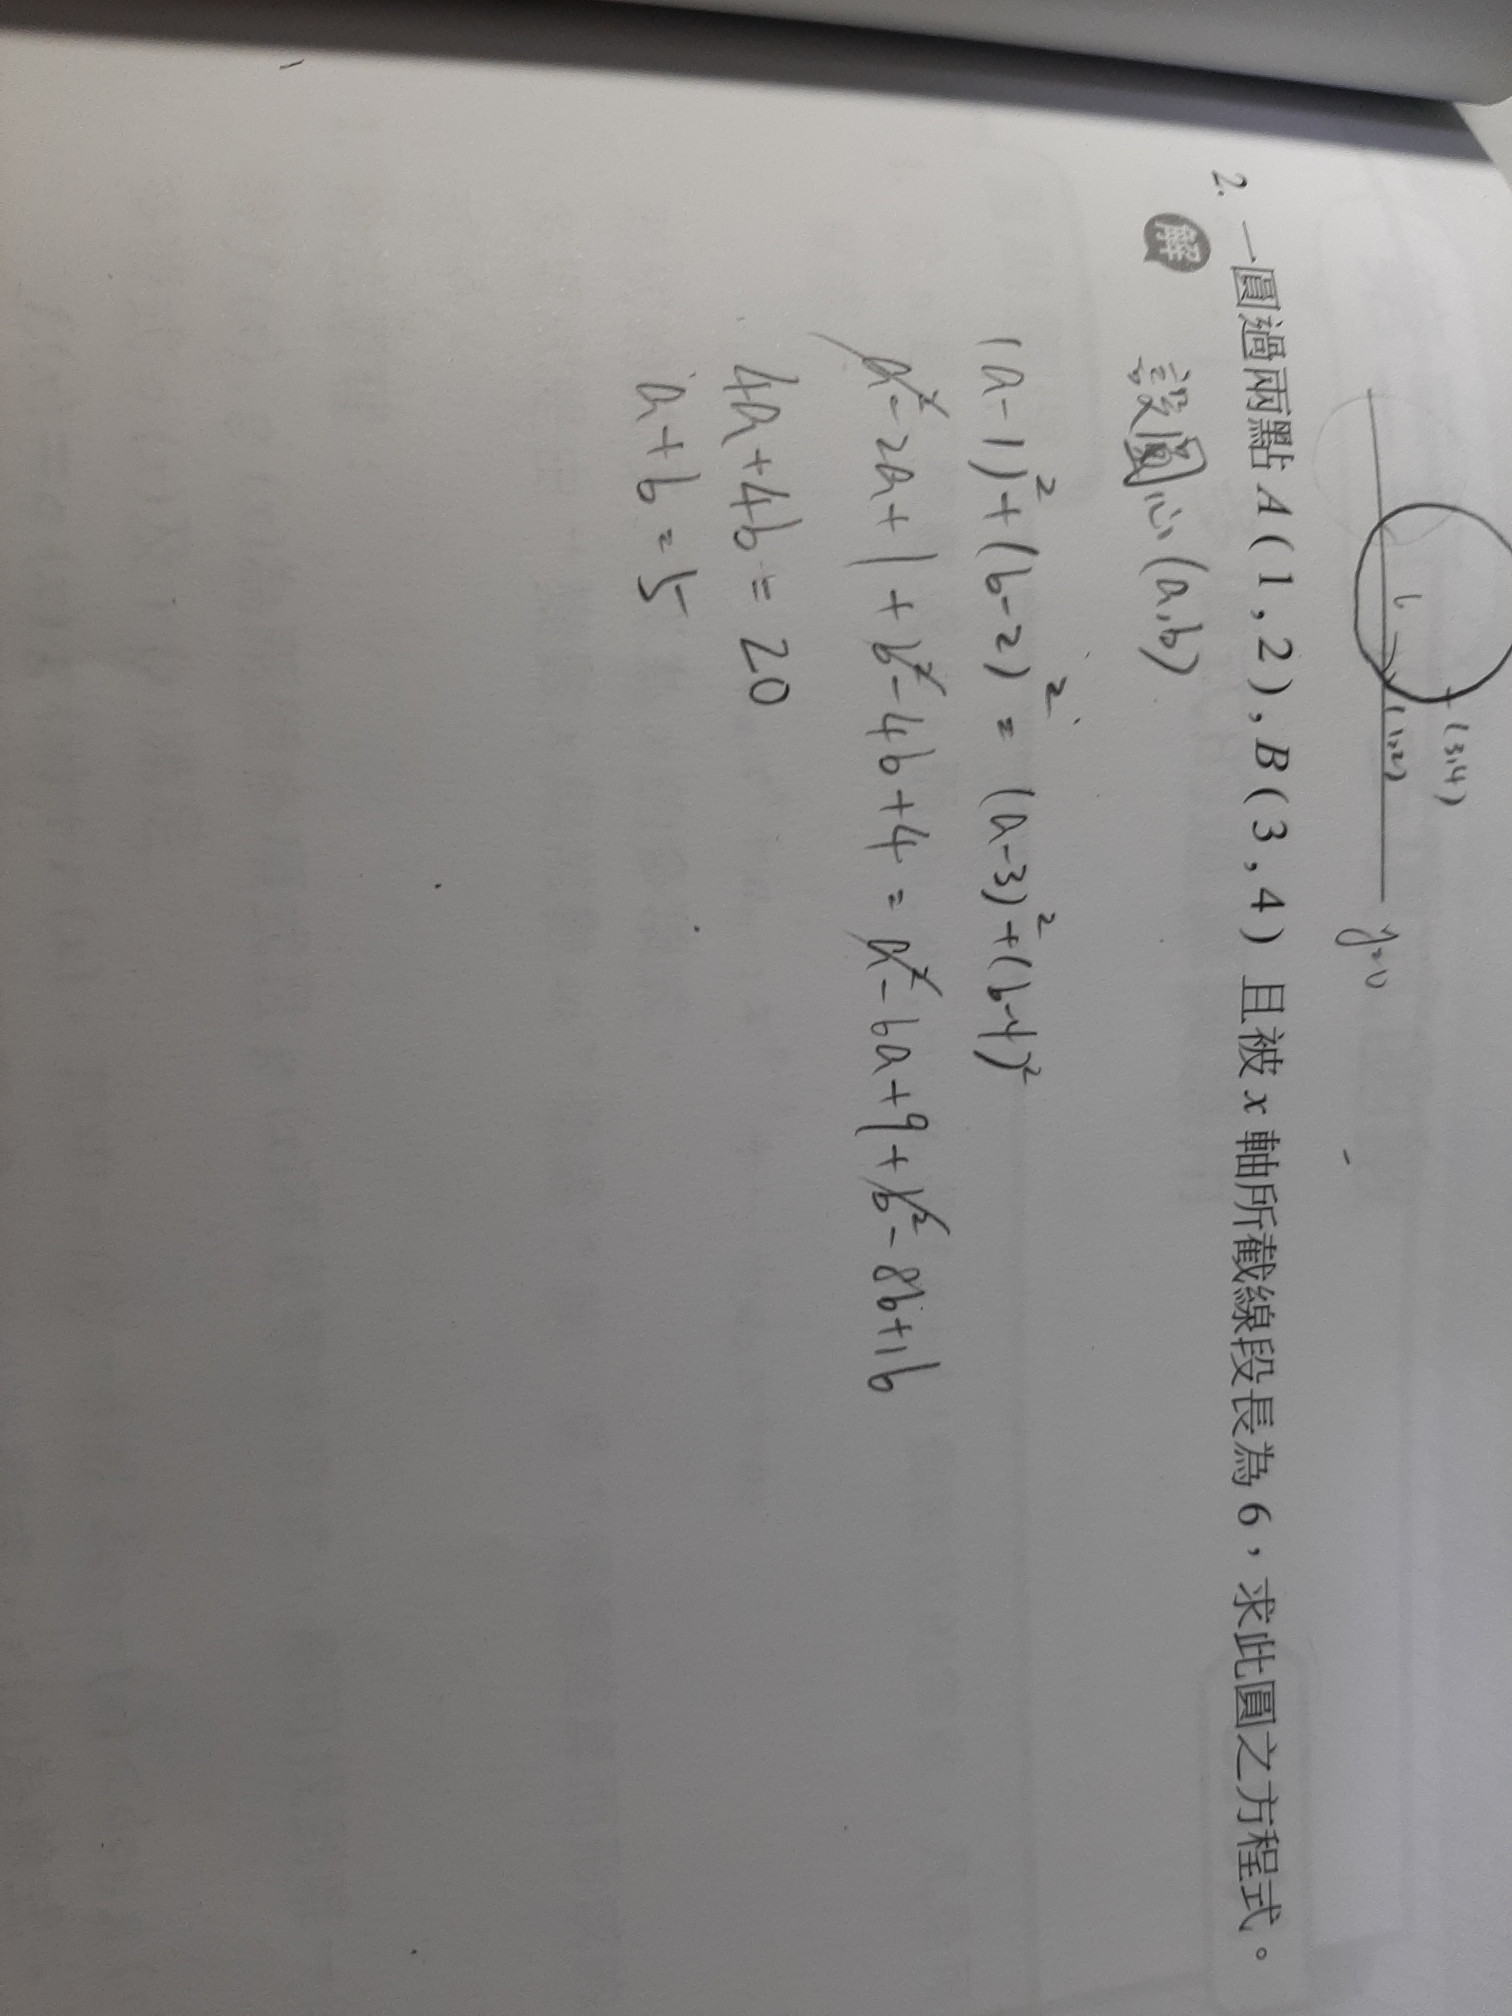 (3,4)
(1,2)
6
y=0
2. 一圓過兩點 A(1,2),B(3,4) 且被 x 軸所截線段長為 6,求此圓之方程式。
解 設圓心(a,b)
(a-1)²+(b-2)² = (a-3)²+(b-4)²
a²-2a+1+b²-4b+4 = a²-6a+9+b²-8b+16
4a+4b=20
a+b=5